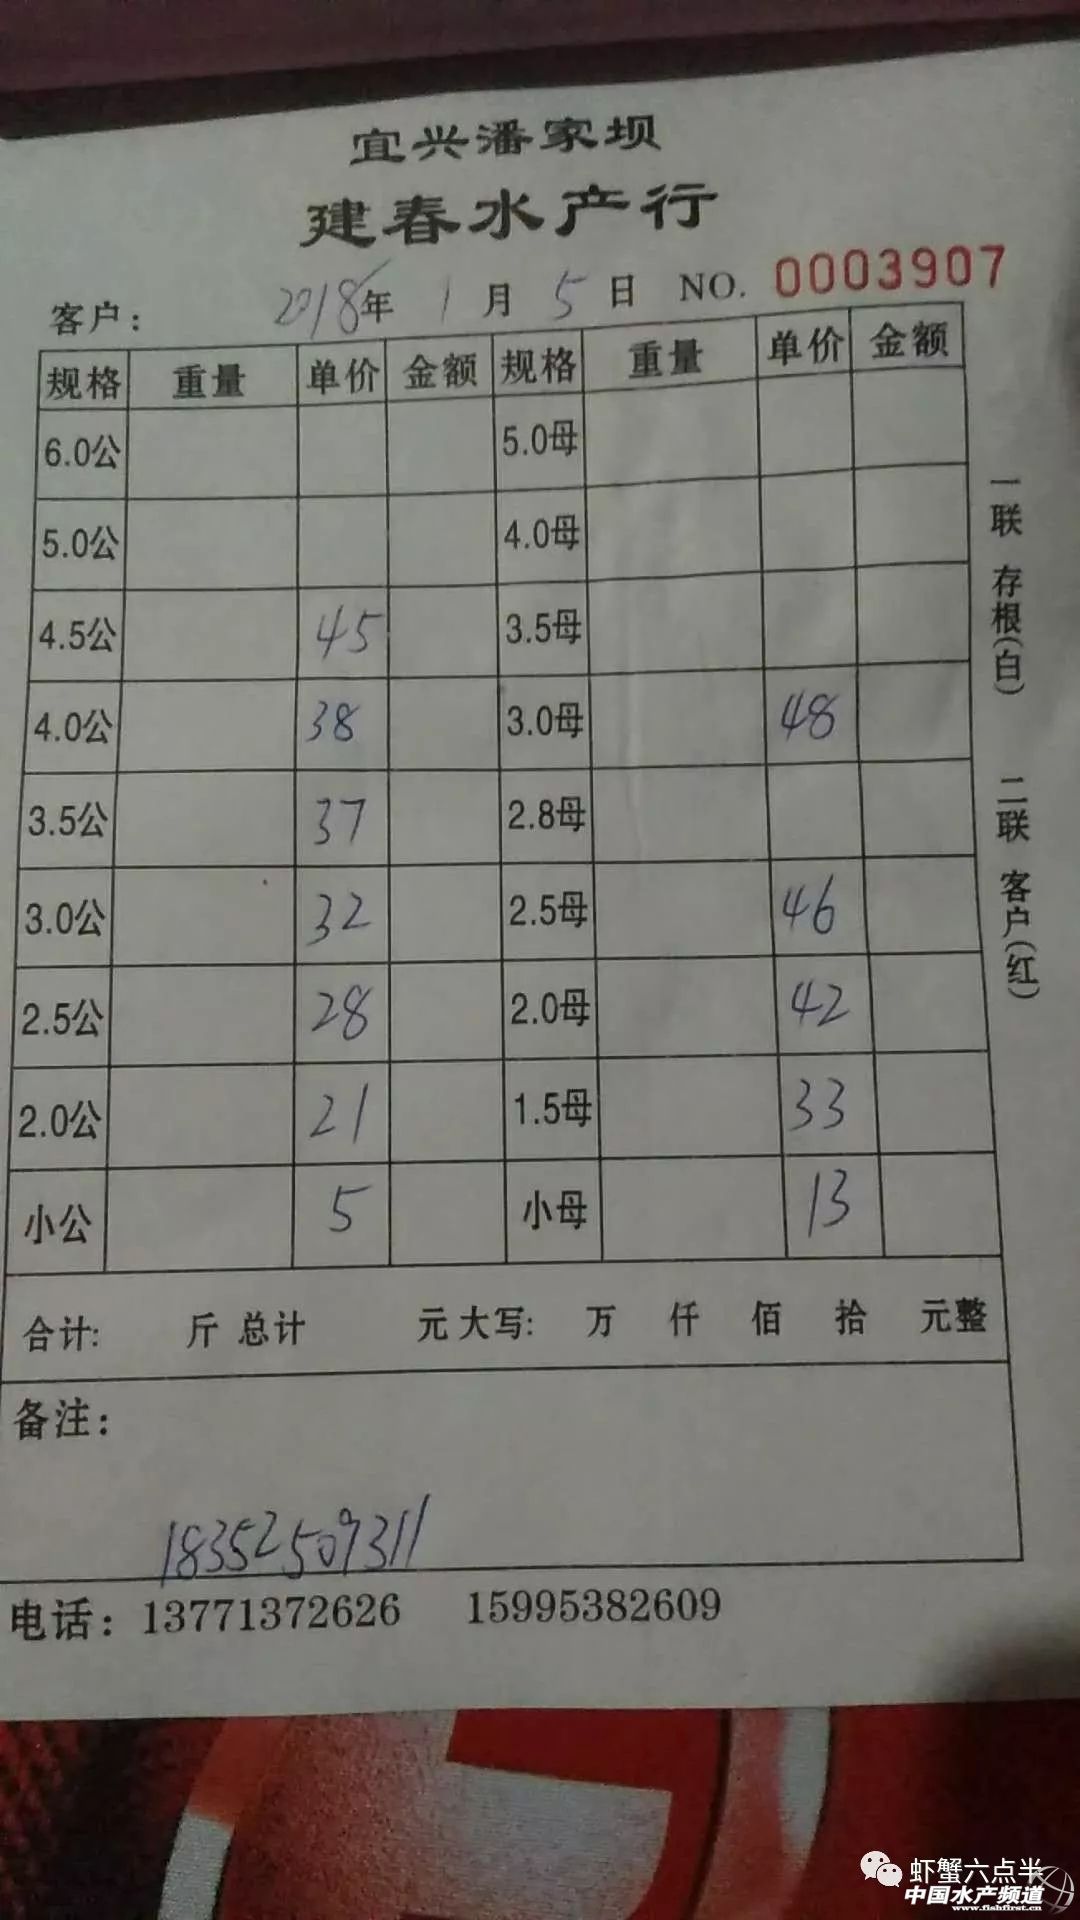 宜兴潘家坝
建春水产行
客户: 2018年 1月 5日 NO. 0003907
规格 重量 单价 金额 规格 重量 单价 金额
6.0公 5.0母
5.0公 4.0母
4.5公 45 3.5母
4.0公 38 3.0母 48
3.5公 37 2.8母
3.0公 32 2.5母 46
2.5公 28 2.0母 42
2.0公 21 1.5母 33
小公 5 小母 13
合计: 斤 总计 元 大写: 万 仟 佰 拾 元整
备注:
18352509311
电话: 13771372626 15995382609
一联 存根(白) 二联 客户(红)
虾蟹六点半
中国水产频道
www.fishfirst.cn